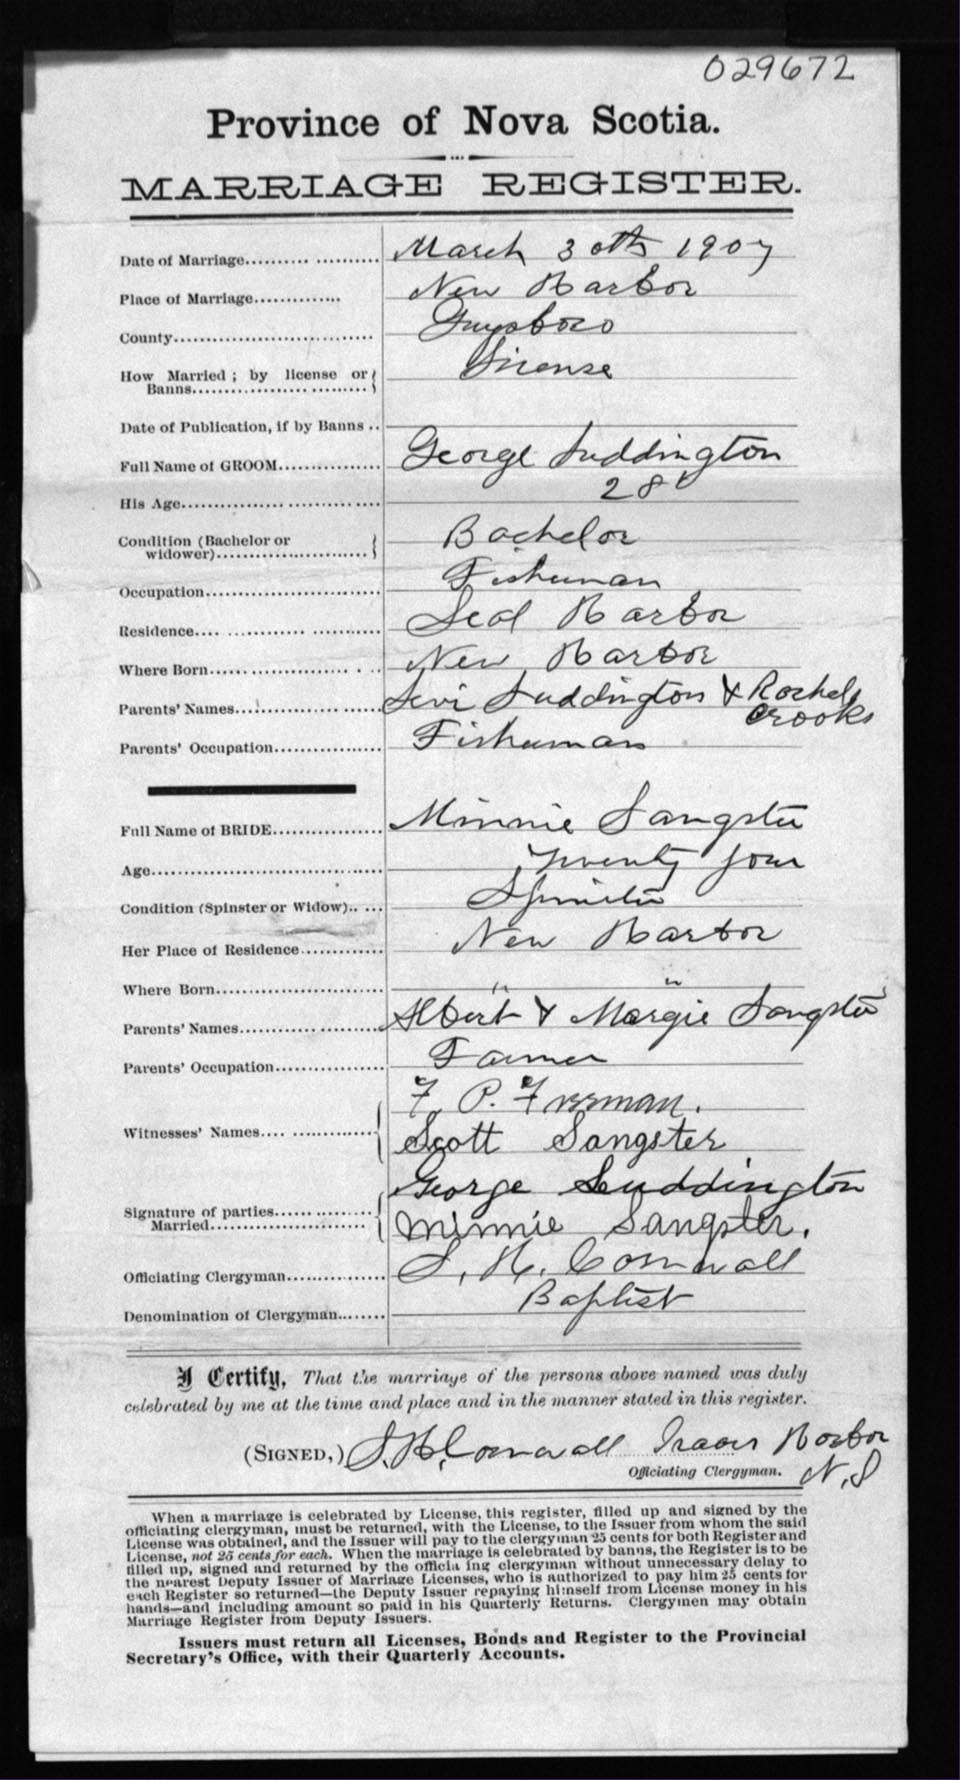 029672
Province of Nova Scotia.
MARRIAGE REGISTER.
Date of Marriage.......... ........... March 30th 1907
Place of Marriage.............. New Harbor
County................................ Guysboro
How Married ; by license or License
Banns....................................
Date of Publication, if by Banns ..
Full Name of GROOM................ George Luddington
His Age................................ 28
Condition (Bachelor or Bachelor
widower)...............................
Occupation............................. Fisherman
Residence.... ........................ Seal Harbor
Where Born............................ New Harbor
Parents' Names....................... Levi Luddington & Rachel
Crooks
Parents' Occupation................. Fisherman
Full Name of BRIDE................. Minnie Sangster
Age..................................... Twenty four
Condition (Spinster or Widow).. .... Spinster
Her Place of Residence............. New Harbor
Where Born........................... " "
Parents' Names....................... Albert & Margie Sangster
Parents' Occupation................. Farmer
F. P. Freeman.
Witnesses' Names.... ...............
Scott Sangster
George Luddington
Signature of parties................
Married................................ Minnie Sangster.
Officiating Clergyman............... S. H. Cornwall
Denomination of Clergyman........ Baptist
I Certify, That the marriage of the persons above named was duly
celebrated by me at the time and place and in the manner stated in this register.
(SIGNED,) S. H. Cornwall Isaacs Harbor
Officiating Clergyman. N.S
When a marriage is celebrated by License, this register, filled up and signed by the
officiating clergyman, must be returned, with the License, to the Issuer from whom the said
License was obtained, and the Issuer will pay to the clergyman 25 cents for both Register and
License, not 25 cents for each. When the marriage is celebrated by banns, the Register is to be
filled up, signed and returned by the officia ing clergyman without unnecessary delay to
the nearest Deputy Issuer of Marriage Licenses, who is authorized to pay him 25 cents for
each Register so returned—the Deputy Issuer repaying himself from License money in his
hands—and including amount so paid in his Quarterly Returns. Clergymen may obtain
Marriage Register from Deputy Issuers.
Issuers must return all Licenses, Bonds and Register to the Provincial
Secretary's Office, with their Quarterly Accounts.